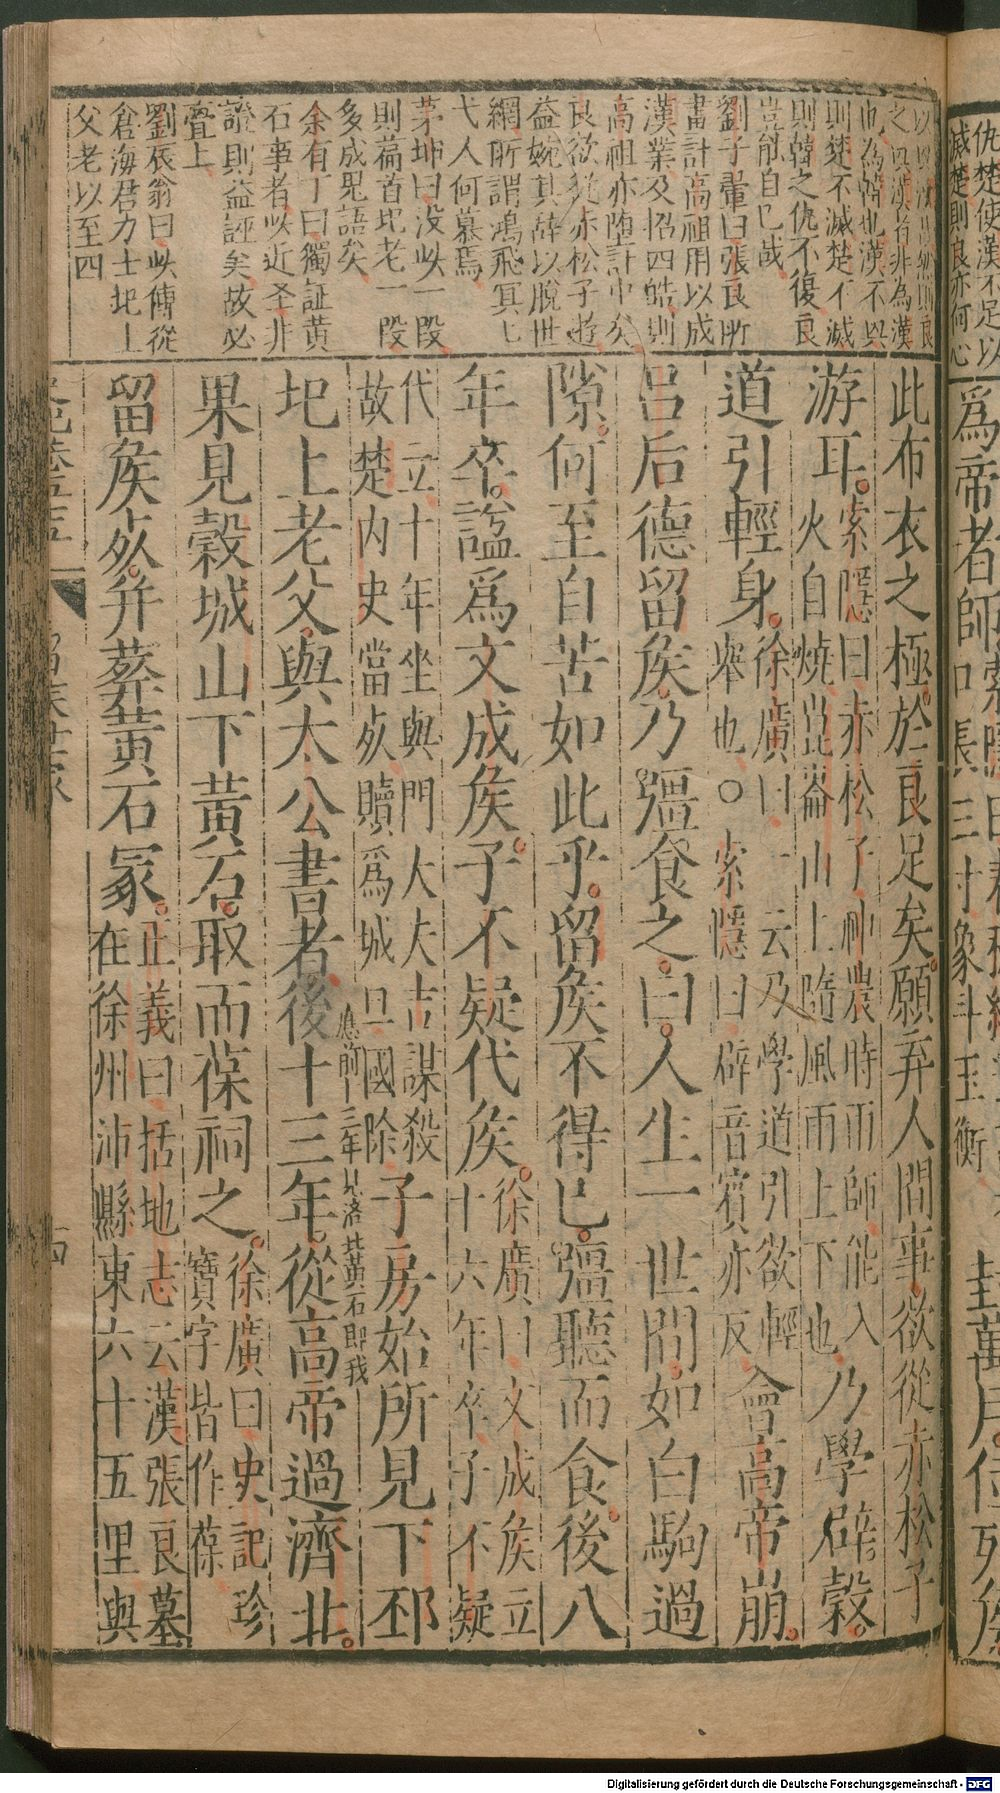 仇楚使漢不足以
滅楚則良亦何心
爲帝者師
封萬戶位列矦
則楚不滅楚不滅
則韓之仇不復良
豈能自已哉
劉子翬曰張良所
畫計高祖用以成
漢業及招四皓則
高祖亦墮計中矣
良欲從赤松子遊
益婉其辞以脫世
網所謂鴻飛冥七
弋人何慕焉
茅坤曰没此一段
則藁首圯老一段
多成鬼語矣
余有丁曰獨証黄
石事者此近圣非
證則益誣矣故必
疊上
劉辰翁曰此傳從
倉海君力士圯上
父老以至四
此布衣之極於良足矣願弃人間事欲從赤松子
游耳索隱曰赤松子神農時雨師能入
火自燒崑崙山上隨風雨上下也乃學辟穀
道引輕身徐廣曰一云乃學道引欲輕
舉也○索隱曰辟音賓亦反會高帝崩
呂后德留矦乃彊食之曰人生一世間如白駒過
隙何至自苦如此乎留矦不得已彊聽而食後八
年卒諡爲文成矦子不疑代矦徐廣曰文成矦立
十六年卒子不疑
代立十年坐與門大夫吉謀殺
故楚内史當死贖爲城旦國除子房始所見下邳
圯上老父與太公書者後十三年從高帝過濟北
應前十三年見濟北黃石即我
果見穀城山下黃石取而葆祠之徐廣曰史記珍
寶字皆作葆
留矦死并葬黃石冢正義曰括地志云漢張良墓
在徐州沛縣東六十五里與
十四
Digitalisierung gefördert durch die Deutsche Forschungsgemeinschaft - DFG